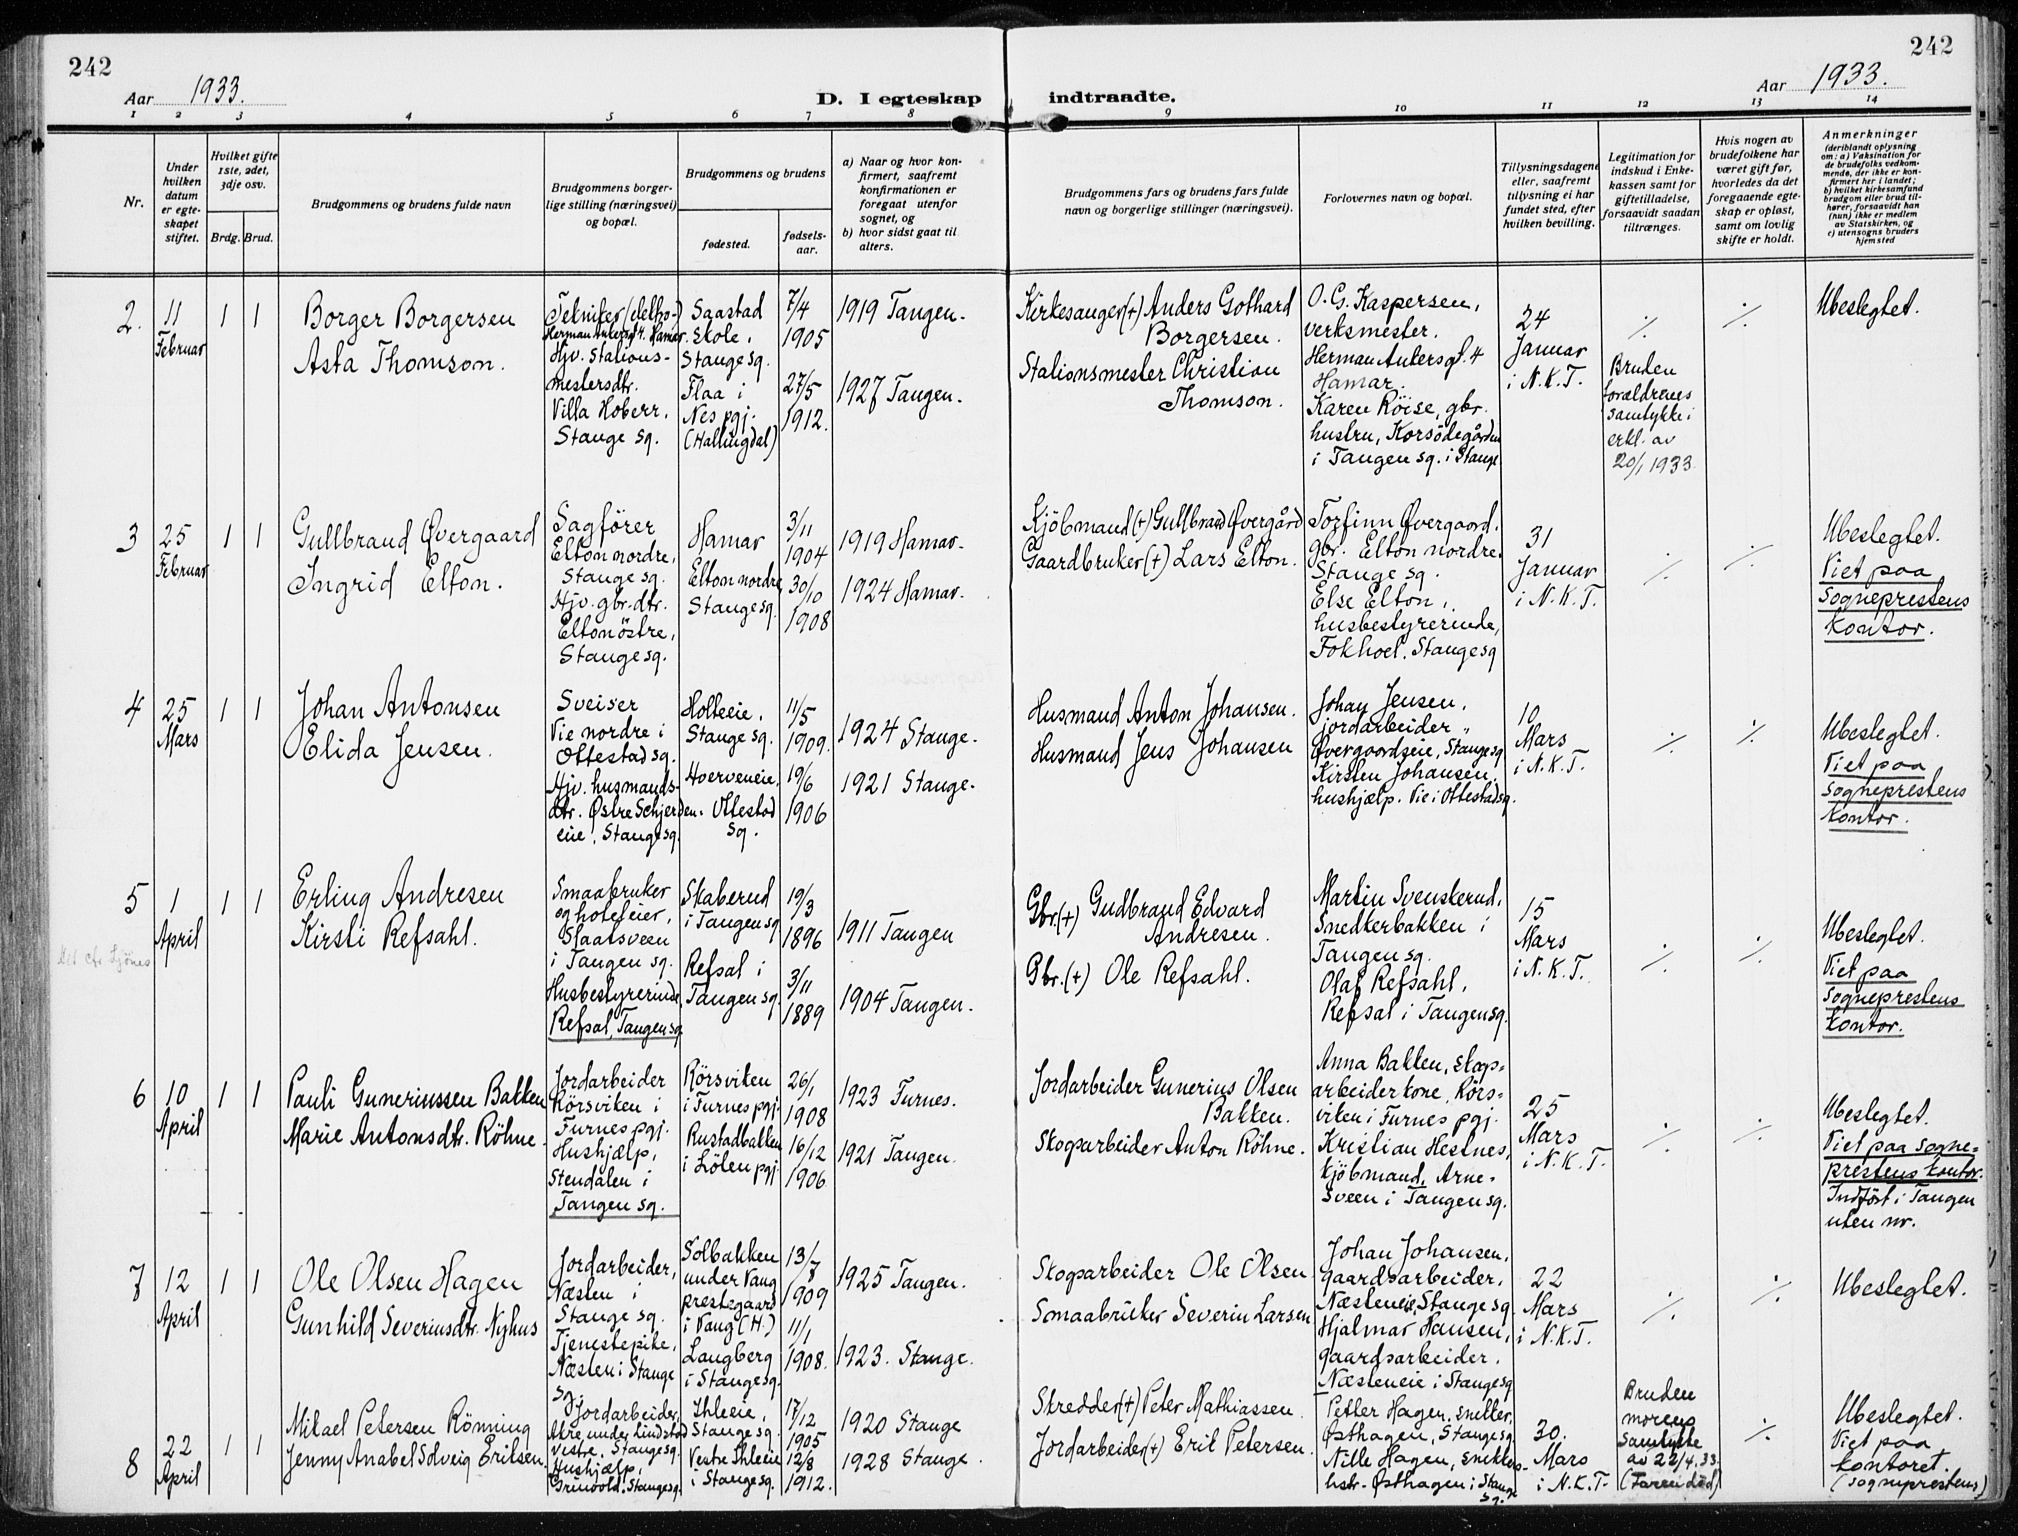 242
242
Aar 1933.
D. I egteskap indtraadte.
Aar 1933.
1 2 3 4 5 6 7 8 9 10 11 12 13 14
Nr.
Under hvilken datum er egteskapet stiftet.
Hvilket gifte 1ste, 2det, 3dje osv.
Brdg. Brud.
Brudgommens og brudens fulde navn
Brudgommens borgerlige stilling (næringsvei) og bopæl.
Brudgommens og brudens
fødested.
fødselsaar.
a) Naar og hvor konfirmert, saafremt konfirmationen er foregaat utenfor sognet, og
b) hvor sidst gaat til alters.
Brudgommens fars og brudens fars fulde navn og borgerlige stillinger (næringsvei).
Forlovernes navn og bopæl.
Tillysningsdagene eller, saafremt tillysning ei har fundet sted, efter hvilken bevilling.
Legitimation for indskud i Enkekassen samt for giftetilladelse, forsaavidt saadan tiltrænges.
Hvis nogen av brudefolkene har været gift før, hvorledes da det foregaaende egteskap er opløst, samt om lovlig skifte er holdt.
Anmerkninger (deriblandt oplysning om: a) Vaksination for de brudefolks vedkommende, der ikke er konfirmert her i landet; b) hvilket kirkesamfund brudgom eller brud tilhører, forsaavidt han (hun) ikke er medlem av Statskirken, og c) utensogns bruders hjemsted
2. 11 Februar 1 1
Borger Borgersen
Asta Thomson.
Herman Ankersgt. 4. Hamar.
Hjv. stationsmestersdtr.
Villa Hoberr,
Stange sg.
Saastad
Skole,
Stange sg.
Flaa i
Nes pgj.
(Hallingdal)
7/4 1905
27/5 1912.
1919 Tangen.
1927 Tangen.
Kirkesanger (+) Anders Gothard
Borgersen.
Stationsmester Christian
Thomson.
O. G. Kaspersen,
verksmester.
Herman Ankersgt. 4
Hamar.
Karen Röise, gbr.
hustru, Korsödegården
i Tangen sg. i Stange
24
Januar
i N.K.T.
./.
Bruden
forældrenes
samtykke i
erkl. av
20/1 1933.
./.
Ubeslegtet.
3 25 Februar 1 1
Gullbrand Øvergaard
Ingrid Elton.
Sagförer
Elton nordre,
Stange sg.
Hjv. gbr. dtr.
Elton östre,
Stange sg.
Hamar
Elton nordre
Stange sg.
3/11 1904
30/10 1908
1919 Hamar.
1924 Hamar.
Kjöbmand (+) Gullbrand Øvergård
Gaardbruker (+) Lars Elton.
Torfinn Øvergaard.
gbr. Elton nordre.
Stange sg.
Else Elton,
husbestyrerinde,
Fokhoel. Stange sg
31
Januar
i N.K.T.
./.
./.
Ubeslegtet.
Viet paa
Sogneprestens
Kontor.
4 25 Mars 1 1
Johan Antonsen
Elida Jensen.
Sveiser
Vie nordre i
Ottestad sg.
Hjv. husmandsdtr. Østre Schjerden-
eie, Stange sg.
Holteeie,
Stange sg.
Hoerveneie,
Ottestad
sg.
11/5 1909.
19/6 1906
1924 Stange.
1921 Stange.
Husmand Anton Johansen.
Husmand Jens Johansen
Johan Jensen,
jordarbeider
Øvergaardseie, Stange sg
Kirsten Johansen,
hushjælp. Vie i Ottestad sg.
10
Mars
i N.K.T.
./.
./.
Ubeslegtet.
Viet paa
Sogneprestens
Kontor.
5 1 April 1 1
Erling Andresen
Kirsti Refsahl.
Smaabruker
og hoteleier,
Slaatsveen
i Tangen sg.
Husbestyrerinde
Refsal, Tangen sg
Skaberud
i Tangen sg
Refsal i
Tangen sg.
19/3 1896
3/11 1889
1911 Tangen
1904 Tangen.
Gbr. (+) Gudbrand Edvard
Andresen.
Gbr. (+) Ole Refsahl.
Martin Svenskerud,
Snedkerbakken i
Tangen sg.
Olaf Refsahl,
Refsal i Tangen sg.
15
Mars
i N.K.T.
./.
./.
Ubeslegtet.
Viet paa
Sogneprestens
Kontor.
6 10 April 1 1
Pauli Guneriussen Bakken
Marie Antonsdtr. Röhne.
Jordarbeider
Rörsviken i
Furnes pgj.
Hushjælp,
Stendalen i
Tangen sg.
Rörsviken
i Furnes pgj.
Rustadbakken
i Löten pgj.
26/1 1908
16/12 1906
1923 Furnes.
1921 Tangen.
Jordarbeider Gunerius Olsen
Bakken.
Skogarbeider Anton Röhne.
Anna Bakken, skog-
arbeider kone, Rörs-
viken i Furnes pgj.
Kristian Hestnes,
kjöbmand, Arne-
sveen i Tangen sg.
25
Mars
i N.K.T.
./.
./.
Ubeslegtet.
Viet paa Sogne-
prestens kontor.
Indfört i Tangen
uten nr.
7 12 April 1 1
Ole Olsen Hagen
Gunhild Severinsdtr. Nyhus
Jordarbeider,
Næsten i
Stange sg.
Tjenestepike,
Næsten i Stange
sg.
Solbakken
under Vang
prestegaard
i Vang (H.)
Langberg
i Stange sg.
13/7 1909
11/1 1908.
1925 Tangen.
1923. Stange.
Skogarbeider Ole Olsen
Smaabruker Severin Larsen
Johan Johansen,
gaardsarbeider,
Næsteneie, Stange sg.
Hjalmar Hansen,
gaardsarbeider.
Næsteneie i Stange sg
22
Mars
i N.K.T.
./.
./.
Ubeslegtet.
8 22 April 1 1
Mikael Petersen Rönning
Jenny Anabel Solveig Eriksen.
Jordarbeider,
Alre under Lindstad
vestre, Stange sg.
Hushjælp,
Grinvold. Stange sg.
Ihleeie,
Stange sg.
Vestre Ihleeie
i Stange sg.
17/12 1905
12/8 1912.
1920 Stange
1928 Stange.
Skredder (+) Peter Mathiassen
Jordarbeider (+) Erik Petersen.
Petter Hagen, snekker,
Østhagen, Stange sg.
Nille Hagen, snekkers-
hstr. Østhagen i Stange
sg.
30.
Mars
i N.K.T.
Bruden
morens
Samtykke
av 22/4.33.
(Faren död)
./.
Ubeslegtet.
Viet paa
kontoret.
(sogneprestens)